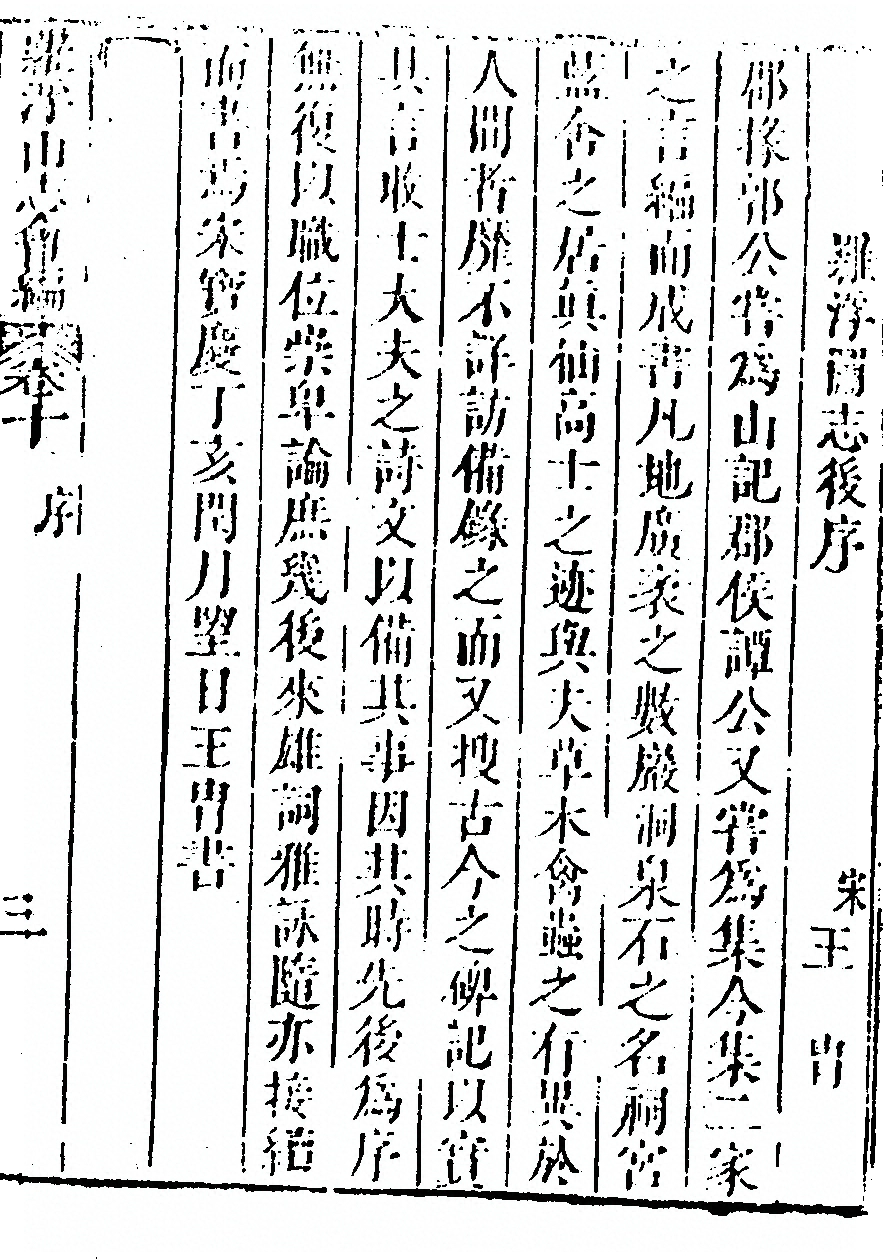 羅浮圖志後序 宋王冑
郡掾郭公嘗為山記郡侯譚公又嘗為集今集二家
之言編而成書凡地廣袤之數巖洞泉石之名祠宮
藍舍之居眞仙高士之迹與夫草木禽蟲之有異於
人間者靡不詳訪備錄之而又搜古今之碑記以實
其言收士大夫之詩文以備其事因其時先後為序
無復以職位崇卑論庶幾後來雄詞雅詠隨亦接續
而書焉宋寶慶丁亥閏月望日王冑書
羅浮山志會編 卷十 序 三